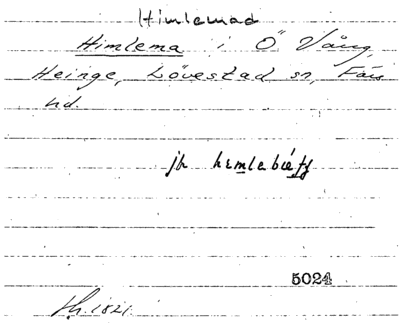 Himlemad
Himlema i Ö Vång,
Heinge, Lövestad sn, Färs
hd.
jfr
5024
1821.